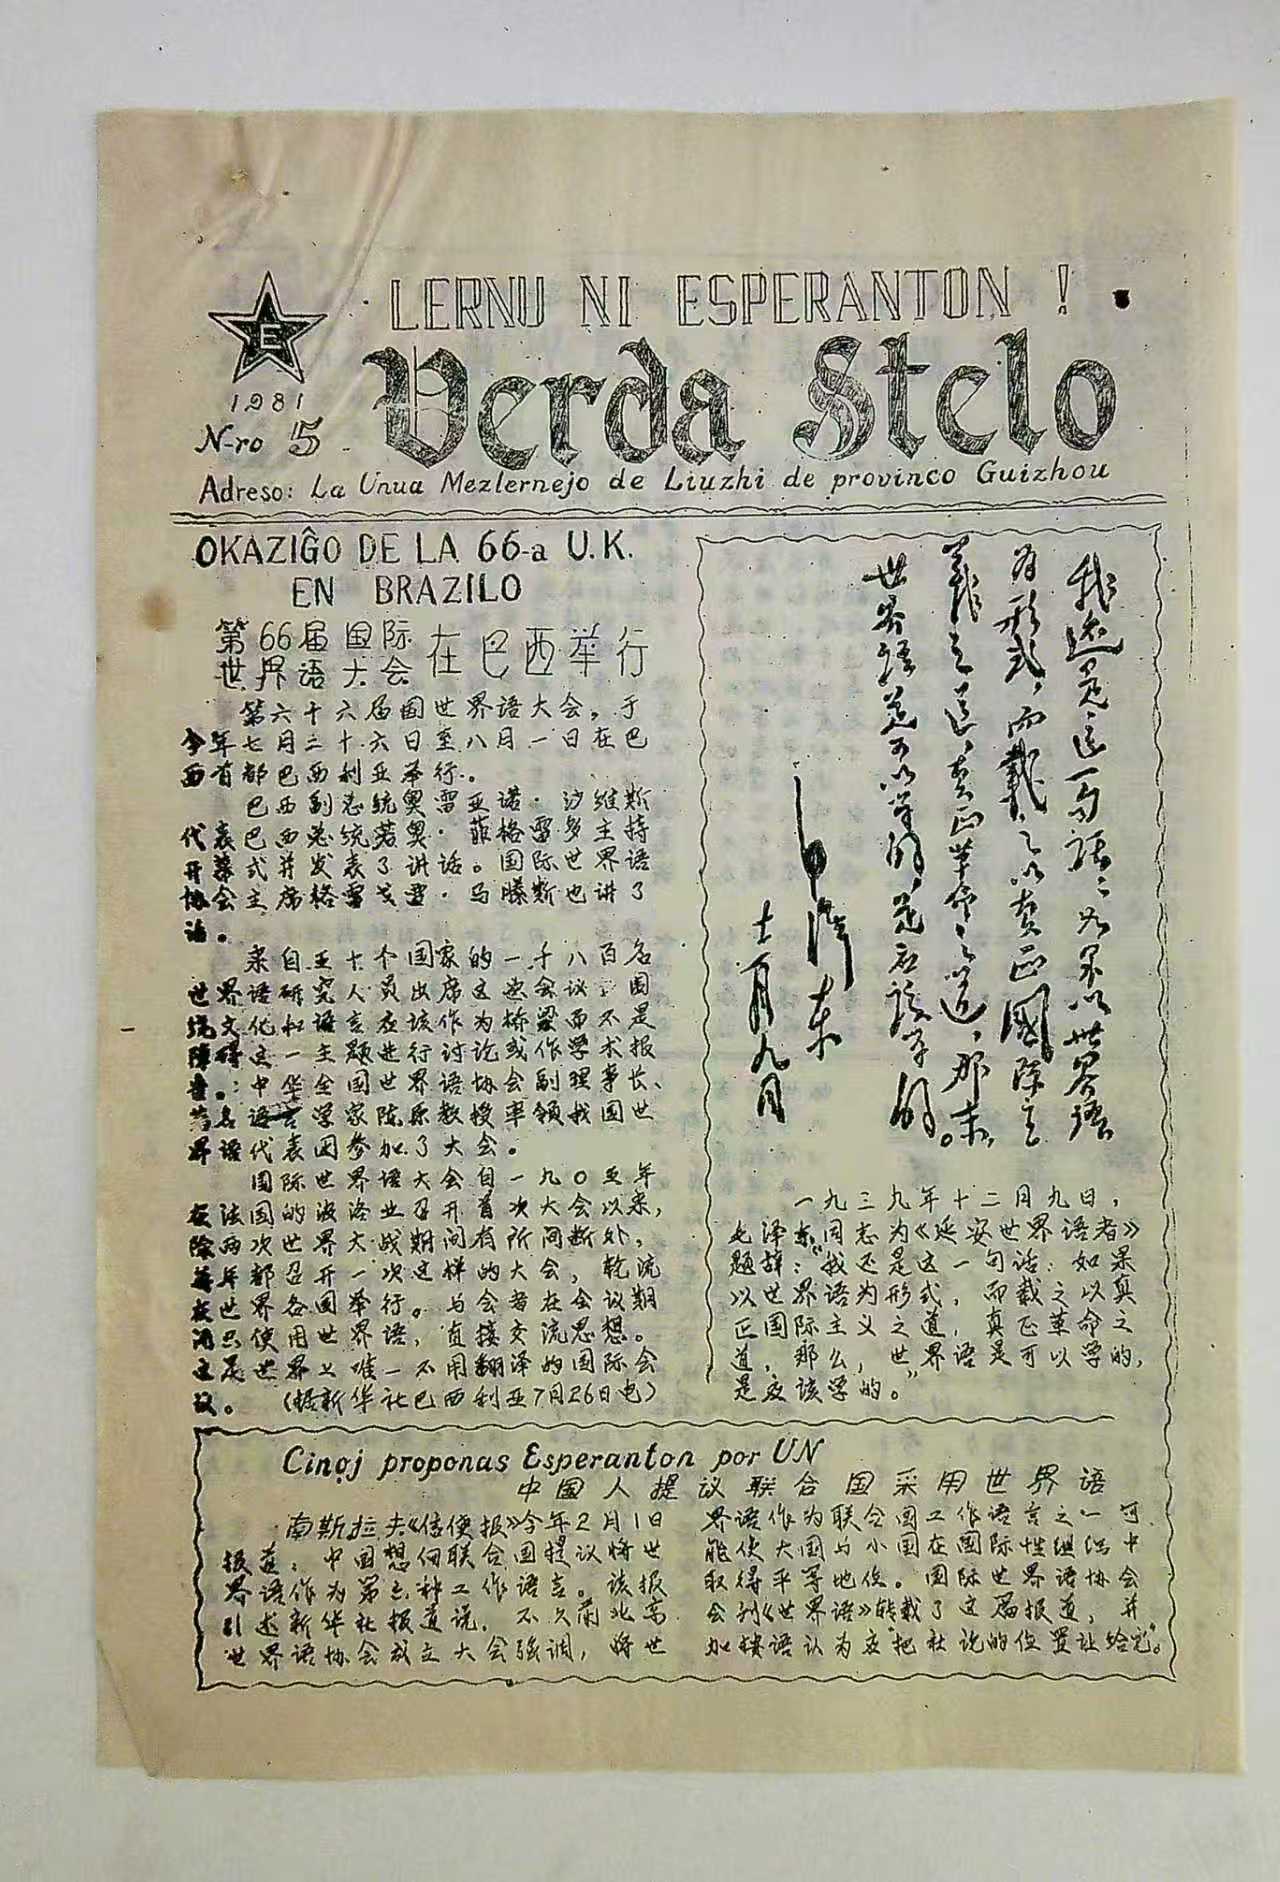 LERNU NI ESPERANTON !
E
1981
N-ro 5
Verda Stelo
Adreso: La Unua Mezlernejo de Liuzhi de provinco Guizhou
OKAZIĜO DE LA 66-a U.K.
EN BRAZILO
第66届国际
世界语大会
在巴西举行
第六十六届国世界语大会，于
今年七月二十六日至八月一日在巴
西首都巴西利亚举行。
巴西副总统奥雷亚诺·沙维斯
代表巴西总统若奥·菲格雷多主持
开幕式并发表了讲话。国际世界语
协会主席格雷戈雷·马滕斯也讲了
话。
来自五十个国家的一千八百名
世界语研究人员出席这次会议，围
绕文化和语言应该作为桥梁而不是
障碍这一主题进行讨论或作学术报
告。中华全国世界语协会副理事长、
著名语言学家陈原教授率领我国世
界语代表团参加了大会。
国际世界语大会自一九〇五年
在法国的波洛业召开首次大会以来，
除两次世界大战期间有所间断外，
每年都召开一次这样的大会，轮流
在世界各国举行。与会者在会议期
间只使用世界语，直接交流思想。
这是世界上唯一不用翻译的国际会
议。（据新华社巴西利亚7月26日电）
我还是这一句话：如果以世界语
为形式，而载之以真正國际主
義之道，真正革命之道，那末，
世界语是可以学的，是应该学的。
毛泽东
十二月九日
一九三九年十二月九日，
毛泽东同志为《延安世界语者》
题辞：“我还是这一句话：如果
以世界语为形式，而载之以真
正国际主义之道，真正革命之
道，那么，世界语是可以学的，
是应该学的。”
Cinoj proponas Esperanton por UN
中国人提议联合国采用世界语
南斯拉夫《信使报》今年2月1日
报道：中国想向联合国提议将世
界语作为第六种工作语言。该报
引述新华社报道说，不久前北京
世界语协会成立大会强调，将世
界语作为联合国工作语言之一可
能使大国与小国在国际性组织中
取得平等地位。国际世界语协会
会刊《世界语》转载了这篇报道，并
加按语认为应“把社说的位置让给它”。